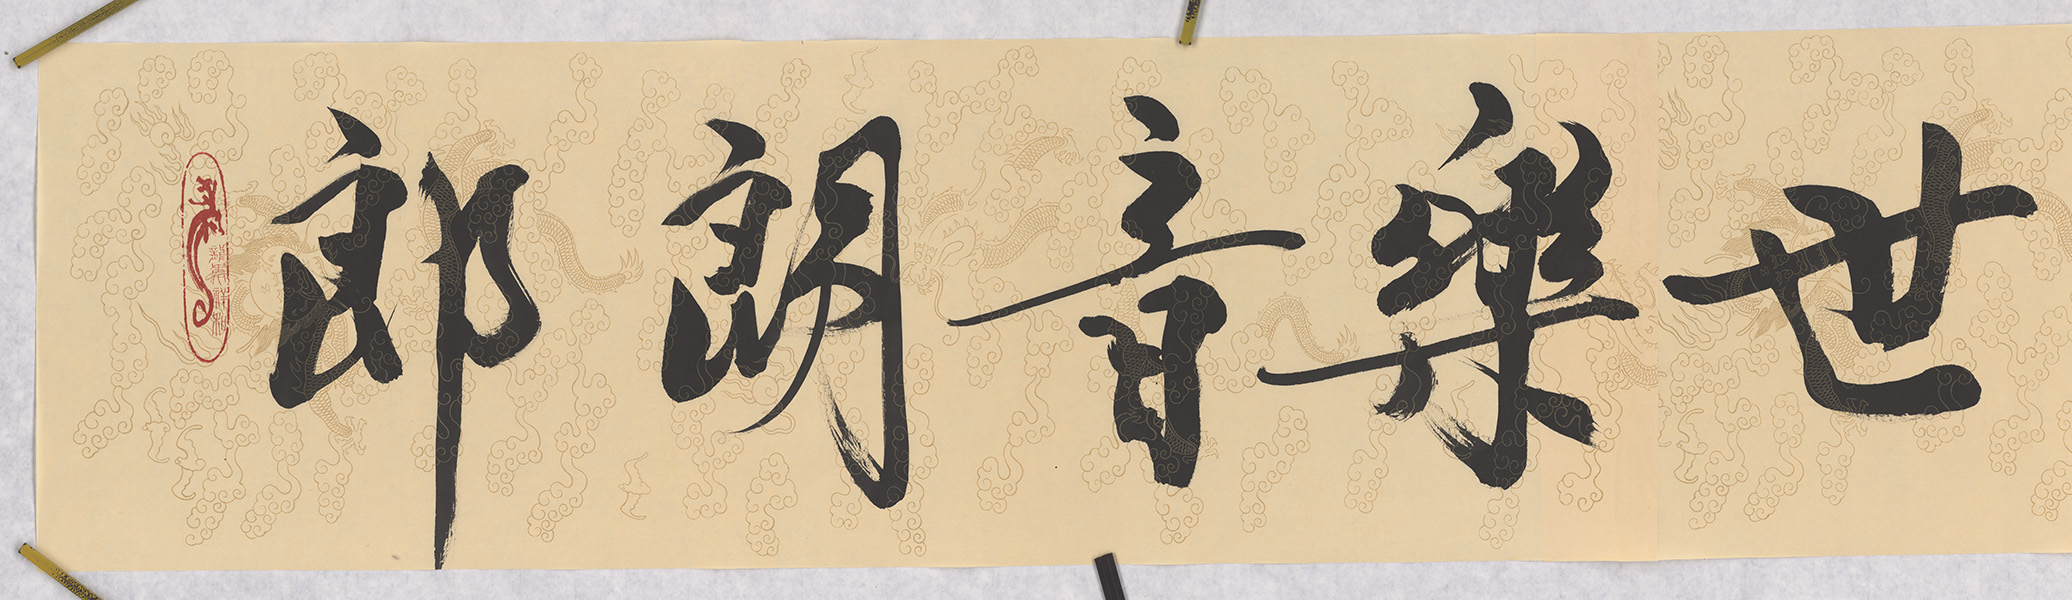 世樂音朗郎